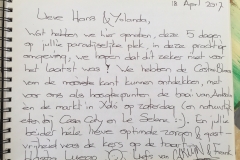 18 April 2017
Lieve Hans & Yolanda,
Wat hebben we hier genoten, deze 5 dagen
op jullie paradijselijke plek. In deze prachtige
omgeving, we hopen dat dit zeker niet voor
het laatst was! We hebben de Costa Blanca
van de mooiste kant kunnen ontdekken, met
voor ons als hoogtepunten de baai van
en de markt in Xaló op zaterdag (en natuurlijk
eten bij Casa Cady en La Solana :-). En jullie
beider hele lieve optimale zorgen & gast-
vrijheid was de kers op de taart.
Liefs van